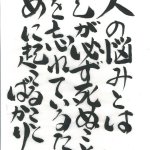 人の悩みとは
己が必ず死ぬこと
を忘れているた
めに起こることば
かり